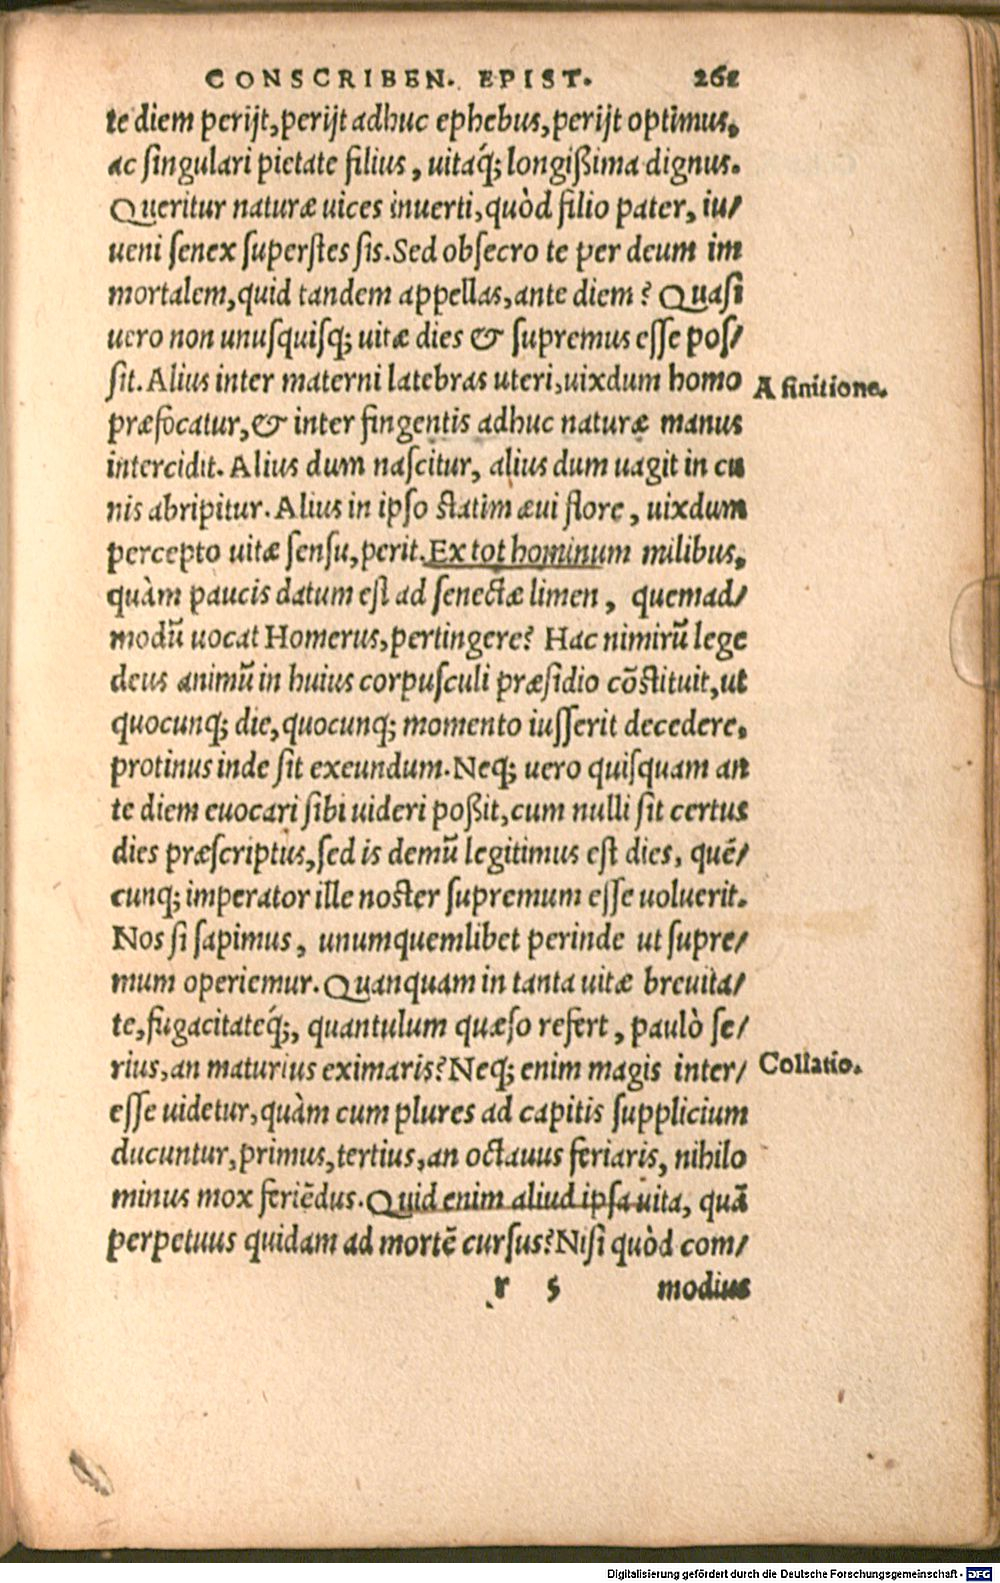 CONSCRIBEN. EPIST. 261
te diem perijt, perijt adhuc ephebus, perijt optimus,
ac singulari pietate filius, uitaq́; longißima dignus.
Queritur naturæ uices inuerti, quòd filio pater, iu/
ueni senex superstes sis. Sed obsecro te per deum im
mortalem, quid tandem appellas, ante diem? Quasi
uero non unusquisq; uitæ dies & supremus esse pos/
sit. Alius inter materni latebras uteri, uixdum homo
A finitione.
præfocatur, & inter fingentis adhuc naturæ manus
intercidit. Alius dum nascitur, alius dum uagit in cu
nis abripitur. Alius in ipso statim æui flore, uixdum
percepto uitæ sensu, perit. Ex tot hominum milibus,
quàm paucis datum est ad senectæ limen, quemad/
modũ uocat Homerus, pertingere? Hac nimirũ lege
deus animũ in huius corpusculi præsidio cõstituit, ut
quocunq; die, quocunq; momento iusserit decedere,
protinus inde sit exeundum. Neq; uero quisquam an
te diem euocari sibi uideri poßit, cum nulli sit certus
dies præscriptus, sed is demũ legitimus est dies, quẽ/
cunq; imperator ille noster supremum esse uoluerit.
Nos si sapimus, unumquemlibet perinde ut supre/
mum operiemur. Quanquam in tanta uitæ breuita/
te, fugacitateq́;, quantulum quæso refert, paulò se/
rius, an maturius eximaris? Neq; enim magis inter/
Collatio.
esse uidetur, quàm cum plures ad capitis supplicium
ducuntur, primus, tertius, an octauus feriaris, nihilo
minus mox feriẽdus. Quid enim aliud ipsa uita, quã
perpetuus quidam ad mortẽ cursus? Nisi quòd com/
r 5 modius
Digitalisierung gefördert durch die Deutsche Forschungsgemeinschaft - DFG